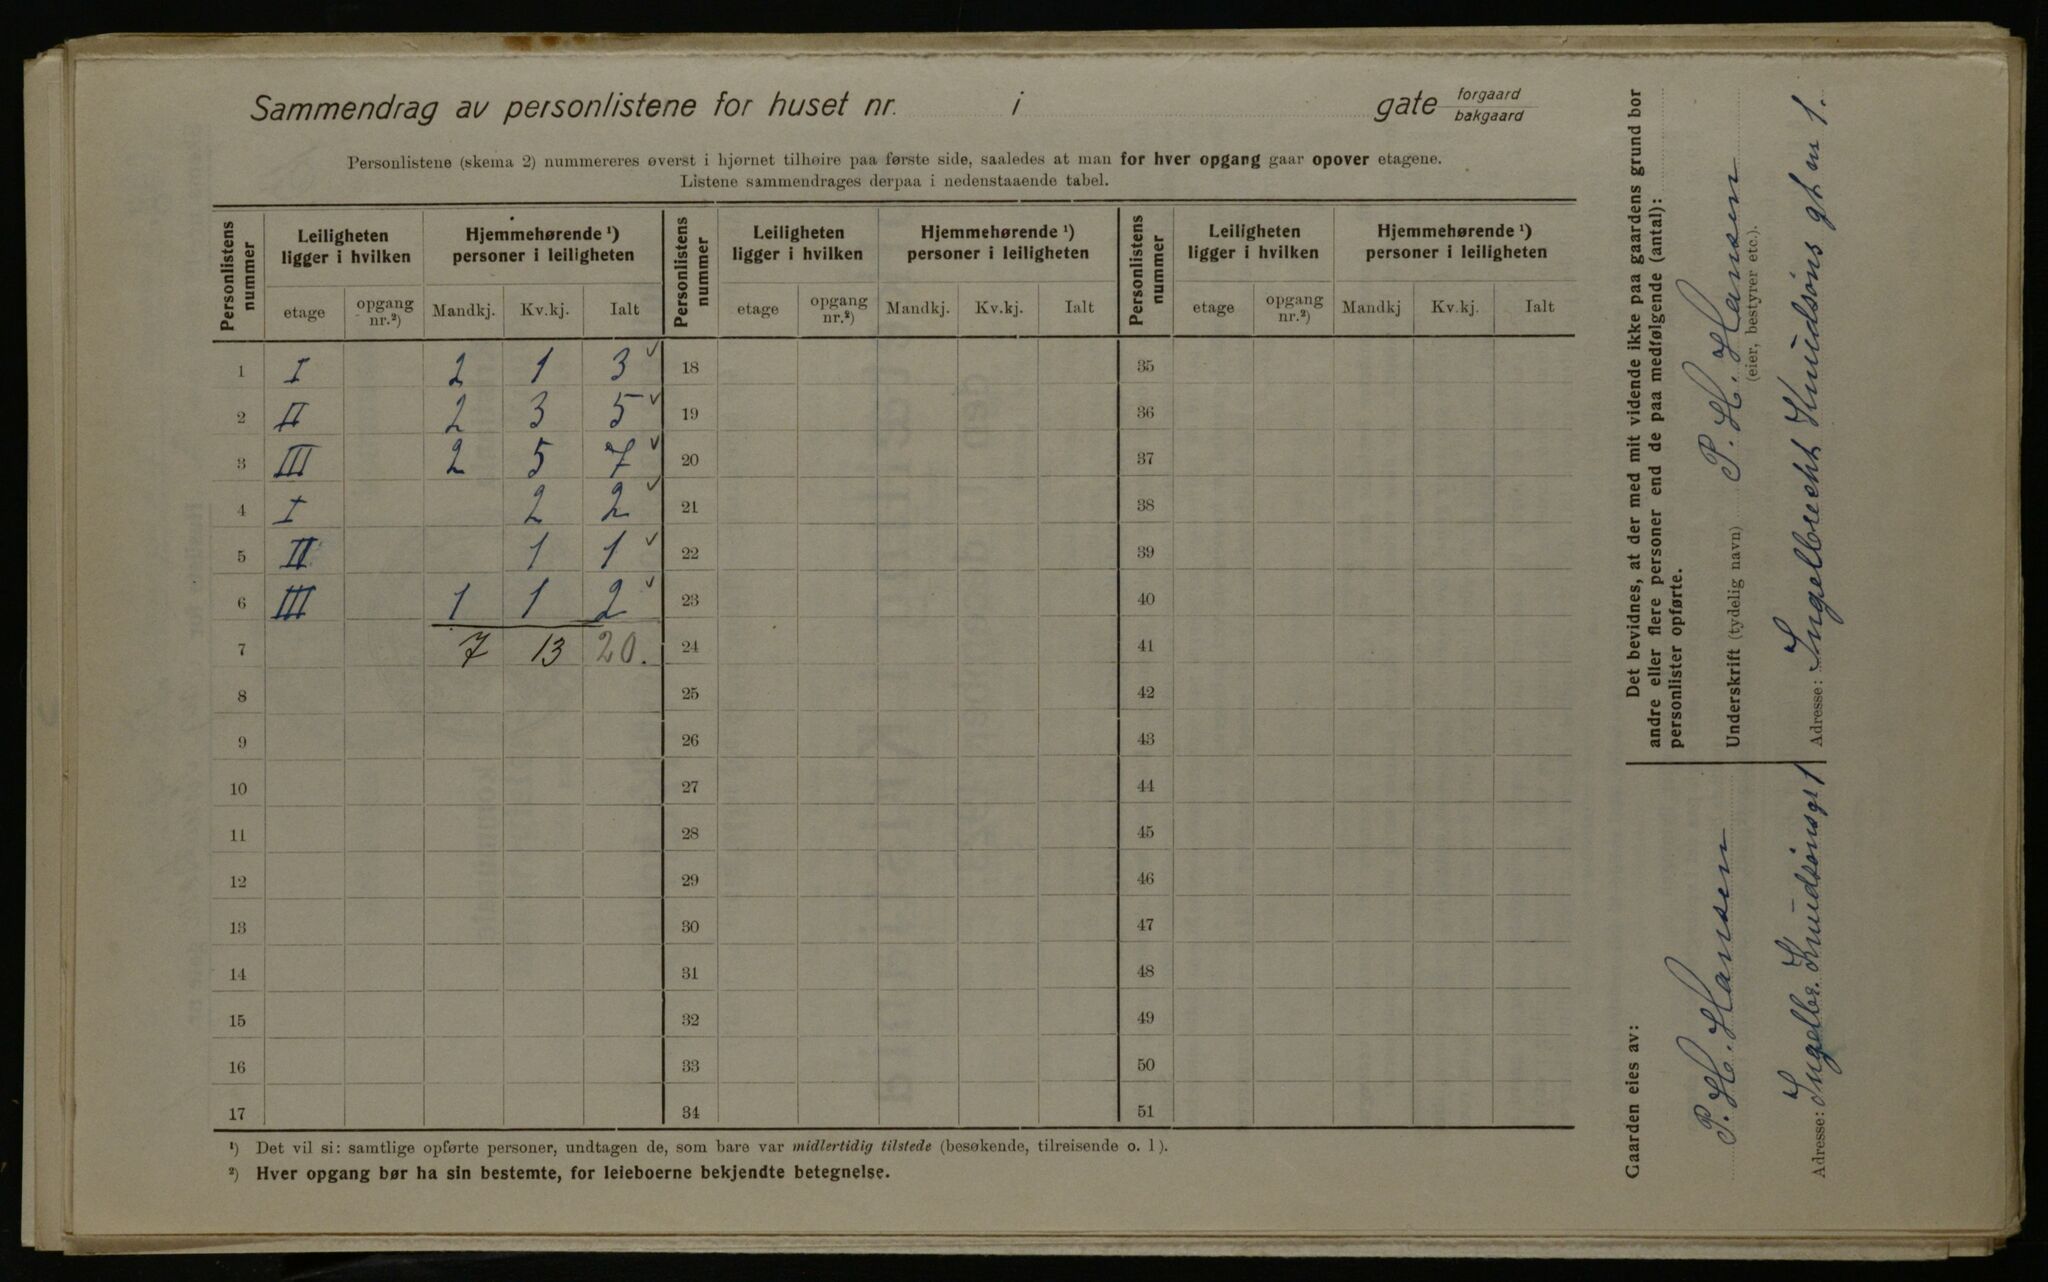 Sammendrag av personlistene for huset nr. i gate forgaard bakgaard
Personlistene (skema 2) nummereres øverst i hjørnet tilhøire paa første side, saaledes at man for hver opgang gaar opover etagene.
Listene sammendrages derpaa i nedenstaaende tabel.
Personlistens nummer Leiligheten ligger i hvilken Hjemmehørende ¹) personer i leiligheten Personlistens nummer Leiligheten ligger i hvilken Hjemmehørende ¹) personer i leiligheten Personlistens nummer Leiligheten ligger i hvilken Hjemmehørende ¹) personer i leiligheten
etage opgang nr.²) Mandkj. Kv.kj. Ialt etage opgang nr.²) Mandkj. Kv.kj. Ialt etage opgang nr.²) Mandkj Kv.kj. Ialt
1 I 2 1 3 ✓ 18 35
2 II 2 3 5 ✓ 19 36
3 III 2 5 7 ✓ 20 37
4 I 2 2 ✓ 21 38
5 II 1 1 ✓ 22 39
6 III 1 1 2 ✓ 23 40
7 7 13 20. 24 41
8 25 42
9 26 43
10 27 44
11 28 45
12 29 46
13 30 47
14 31 48
15 32 49
16 33 50
17 34 51
¹) Det vil si: samtlige opførte personer, undtagen de, som bare var midlertidig tilstede (besøkende, tilreisende o. l).
²) Hver opgang bør ha sin bestemte, for leieboerne bekjendte betegnelse.
Gaarden eies av:
P. H. Hansen
Adresse: Ingelbr. Knudsöns gt 1
Det bevidnes, at der med mit vidende ikke paa gaardens grund bor
andre eller flere personer end de paa medfølgende (antal):
personlister opførte.
Underskrift (tydelig navn) P. H. Hansen
(eier, bestyrer etc.).
Adresse: Ingelbrecht Knudsöns gt nr 1.